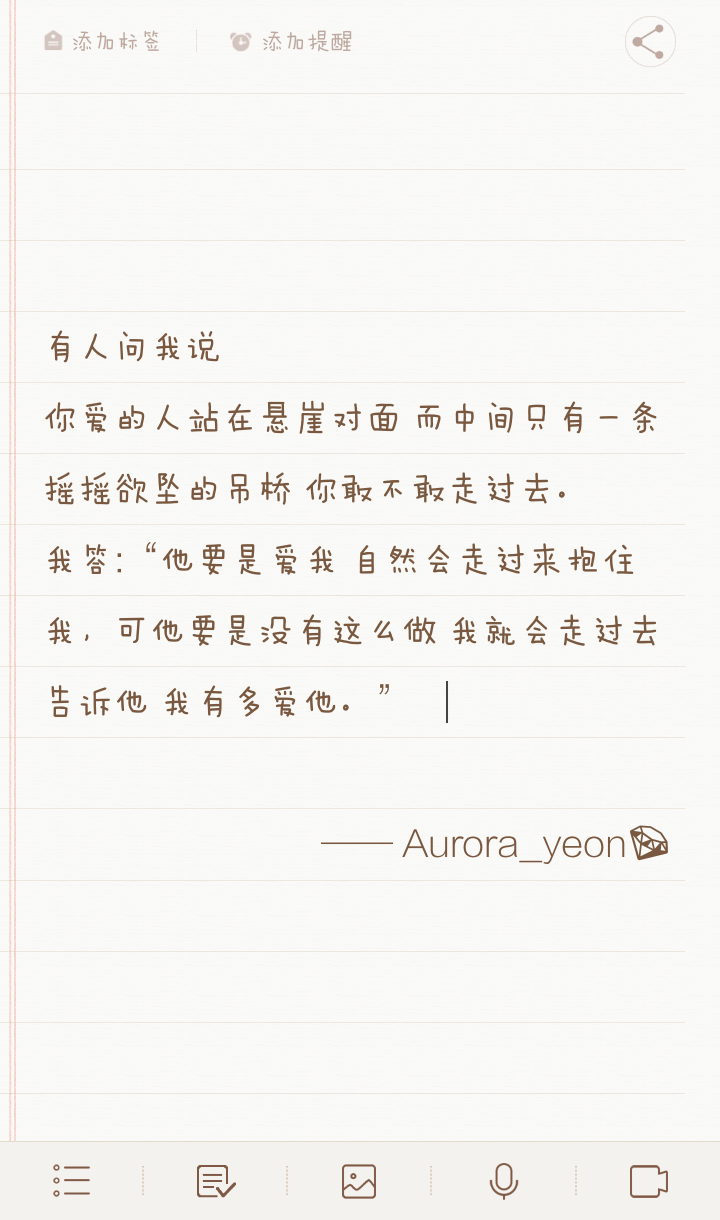 添加标签 添加提醒
有人问我说
你爱的人站在悬崖对面 而中间只有一条
摇摇欲坠的吊桥 你敢不敢走过去。
我答：“他要是爱我 自然会走过来抱住
我，可他要是没有这么做 我就会走过去
告诉他 我有多爱他。”
—— Aurora_yeon